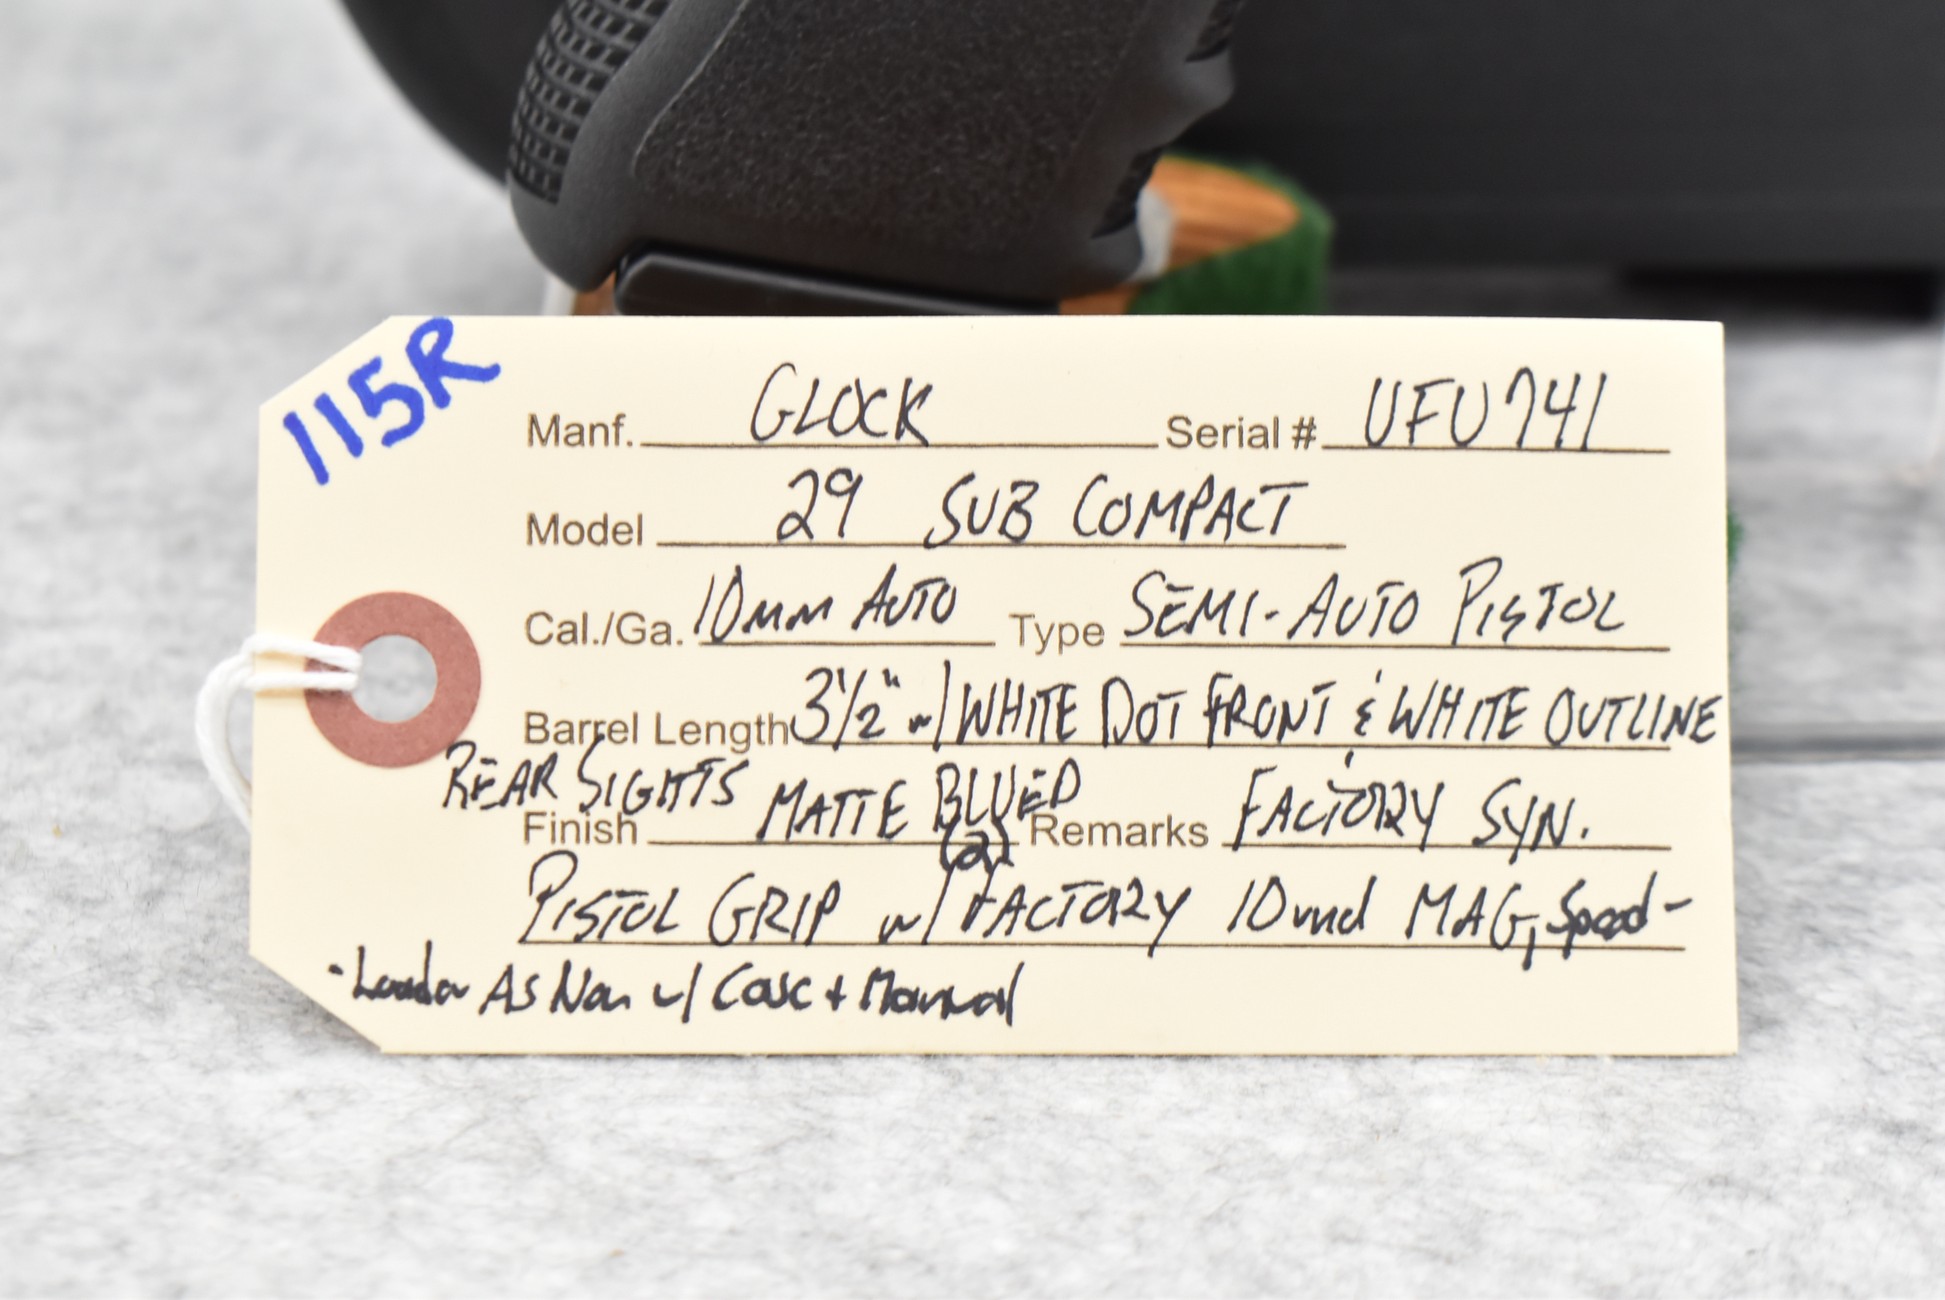 115R
Manf. GLOCK Serial # UFU741
Model 29 SUB COMPACT
Cal./Ga. 10mm AUTO Type SEMI-AUTO PISTOL
Barrel Length 3 1/2" w/ WHITE DOT FRONT & WHITE OUTLINE
REAR SIGHTS
Finish MATTE BLUED Remarks FACTORY SYN.
PISTOL GRIP w/ (2) FACTORY 10rnd MAG, Speed-
-Loader As New w/ Case + Manual